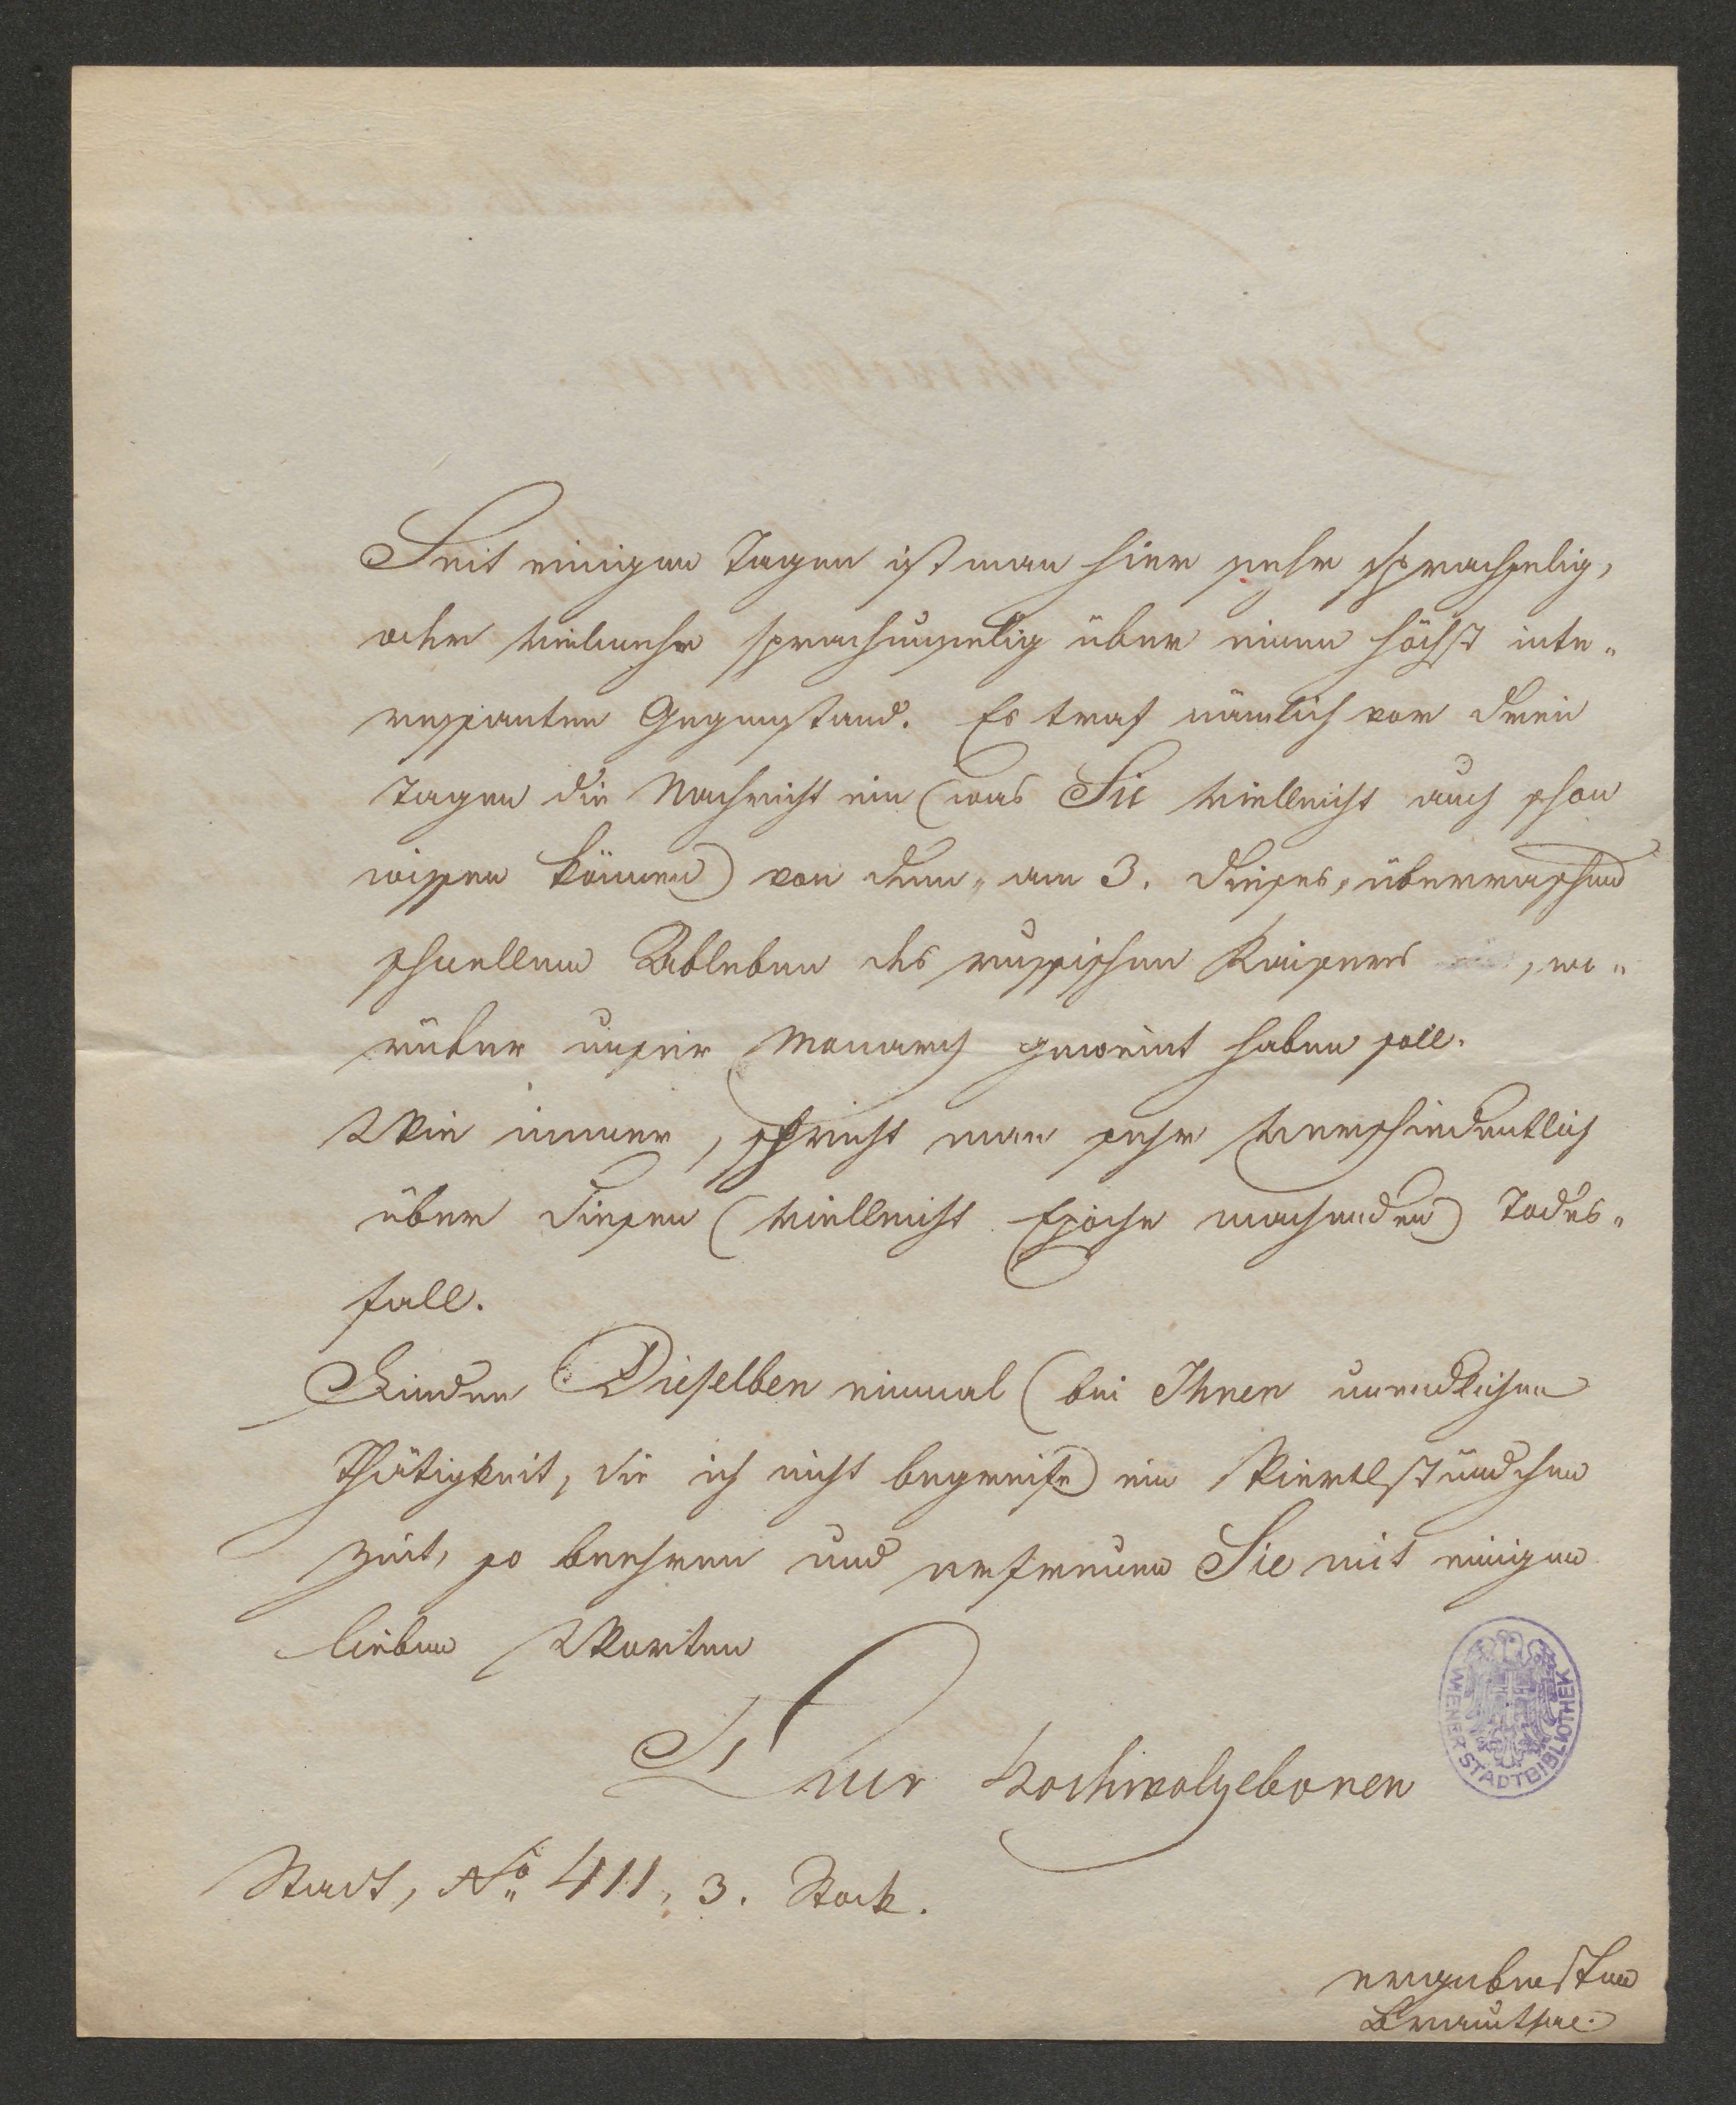 Seit einigen Tagen ist man hier sehr sprachselig,
oder vielmehr sprachunselig über einen höchst inte„
ressanten Gegenstand. Es traf nämlich vor drei
Tagen die Nachricht ein (was Sie vielleicht auch schon
wissen können) von dem, am 3. dieses, überraschend
schnellem Ableben des russischen Kaisers , wo„
rüber unser Monarch geweint haben soll.
Wie immer, spricht man sehr verschiedentlich
über diesen (vielleicht Epoche machenden) Todes„
fall.
Finden Dieselben einmal (bei Ihrer unendlichen
Thätigkeit, die ich nicht begreife) ein Viertlstündchen
Zeit, so beehren und erfreuen Sie mit einigen
lieben Worten
Euer Hochwolgeboren
Stadt, No. 411, 3. Stock.
ergebensten
WIENER STADTBIBLIOTHEK